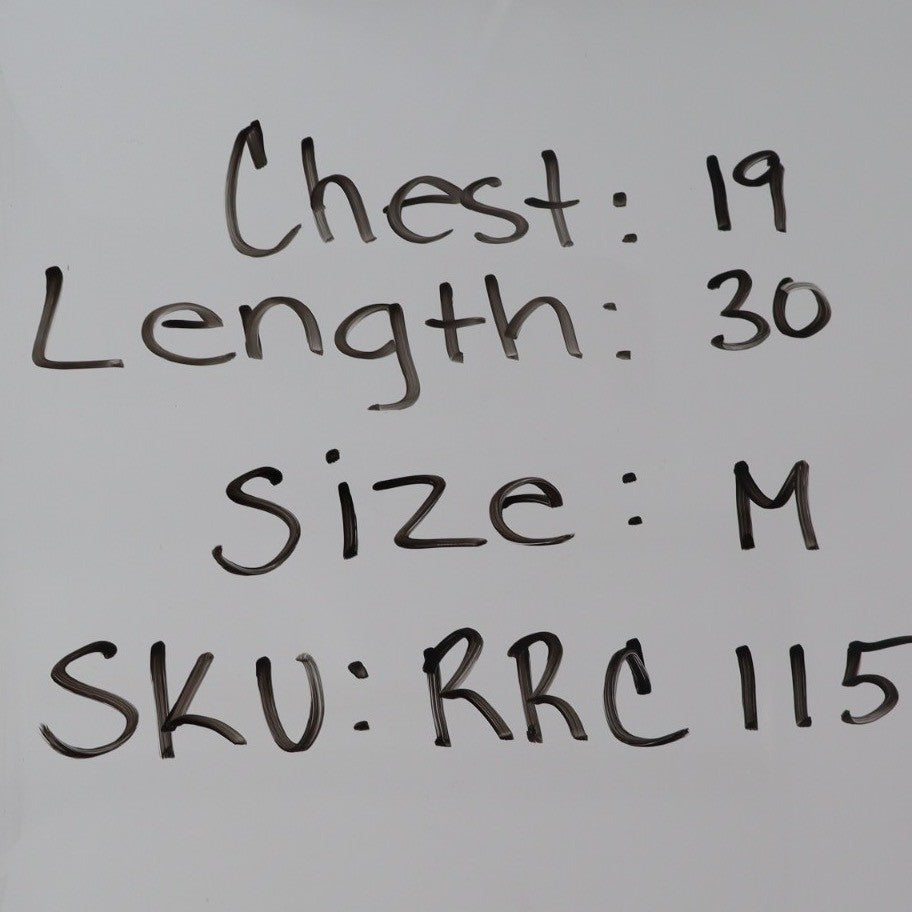 Chest: 19
Length: 30
Size: M
SKU: RRC 115